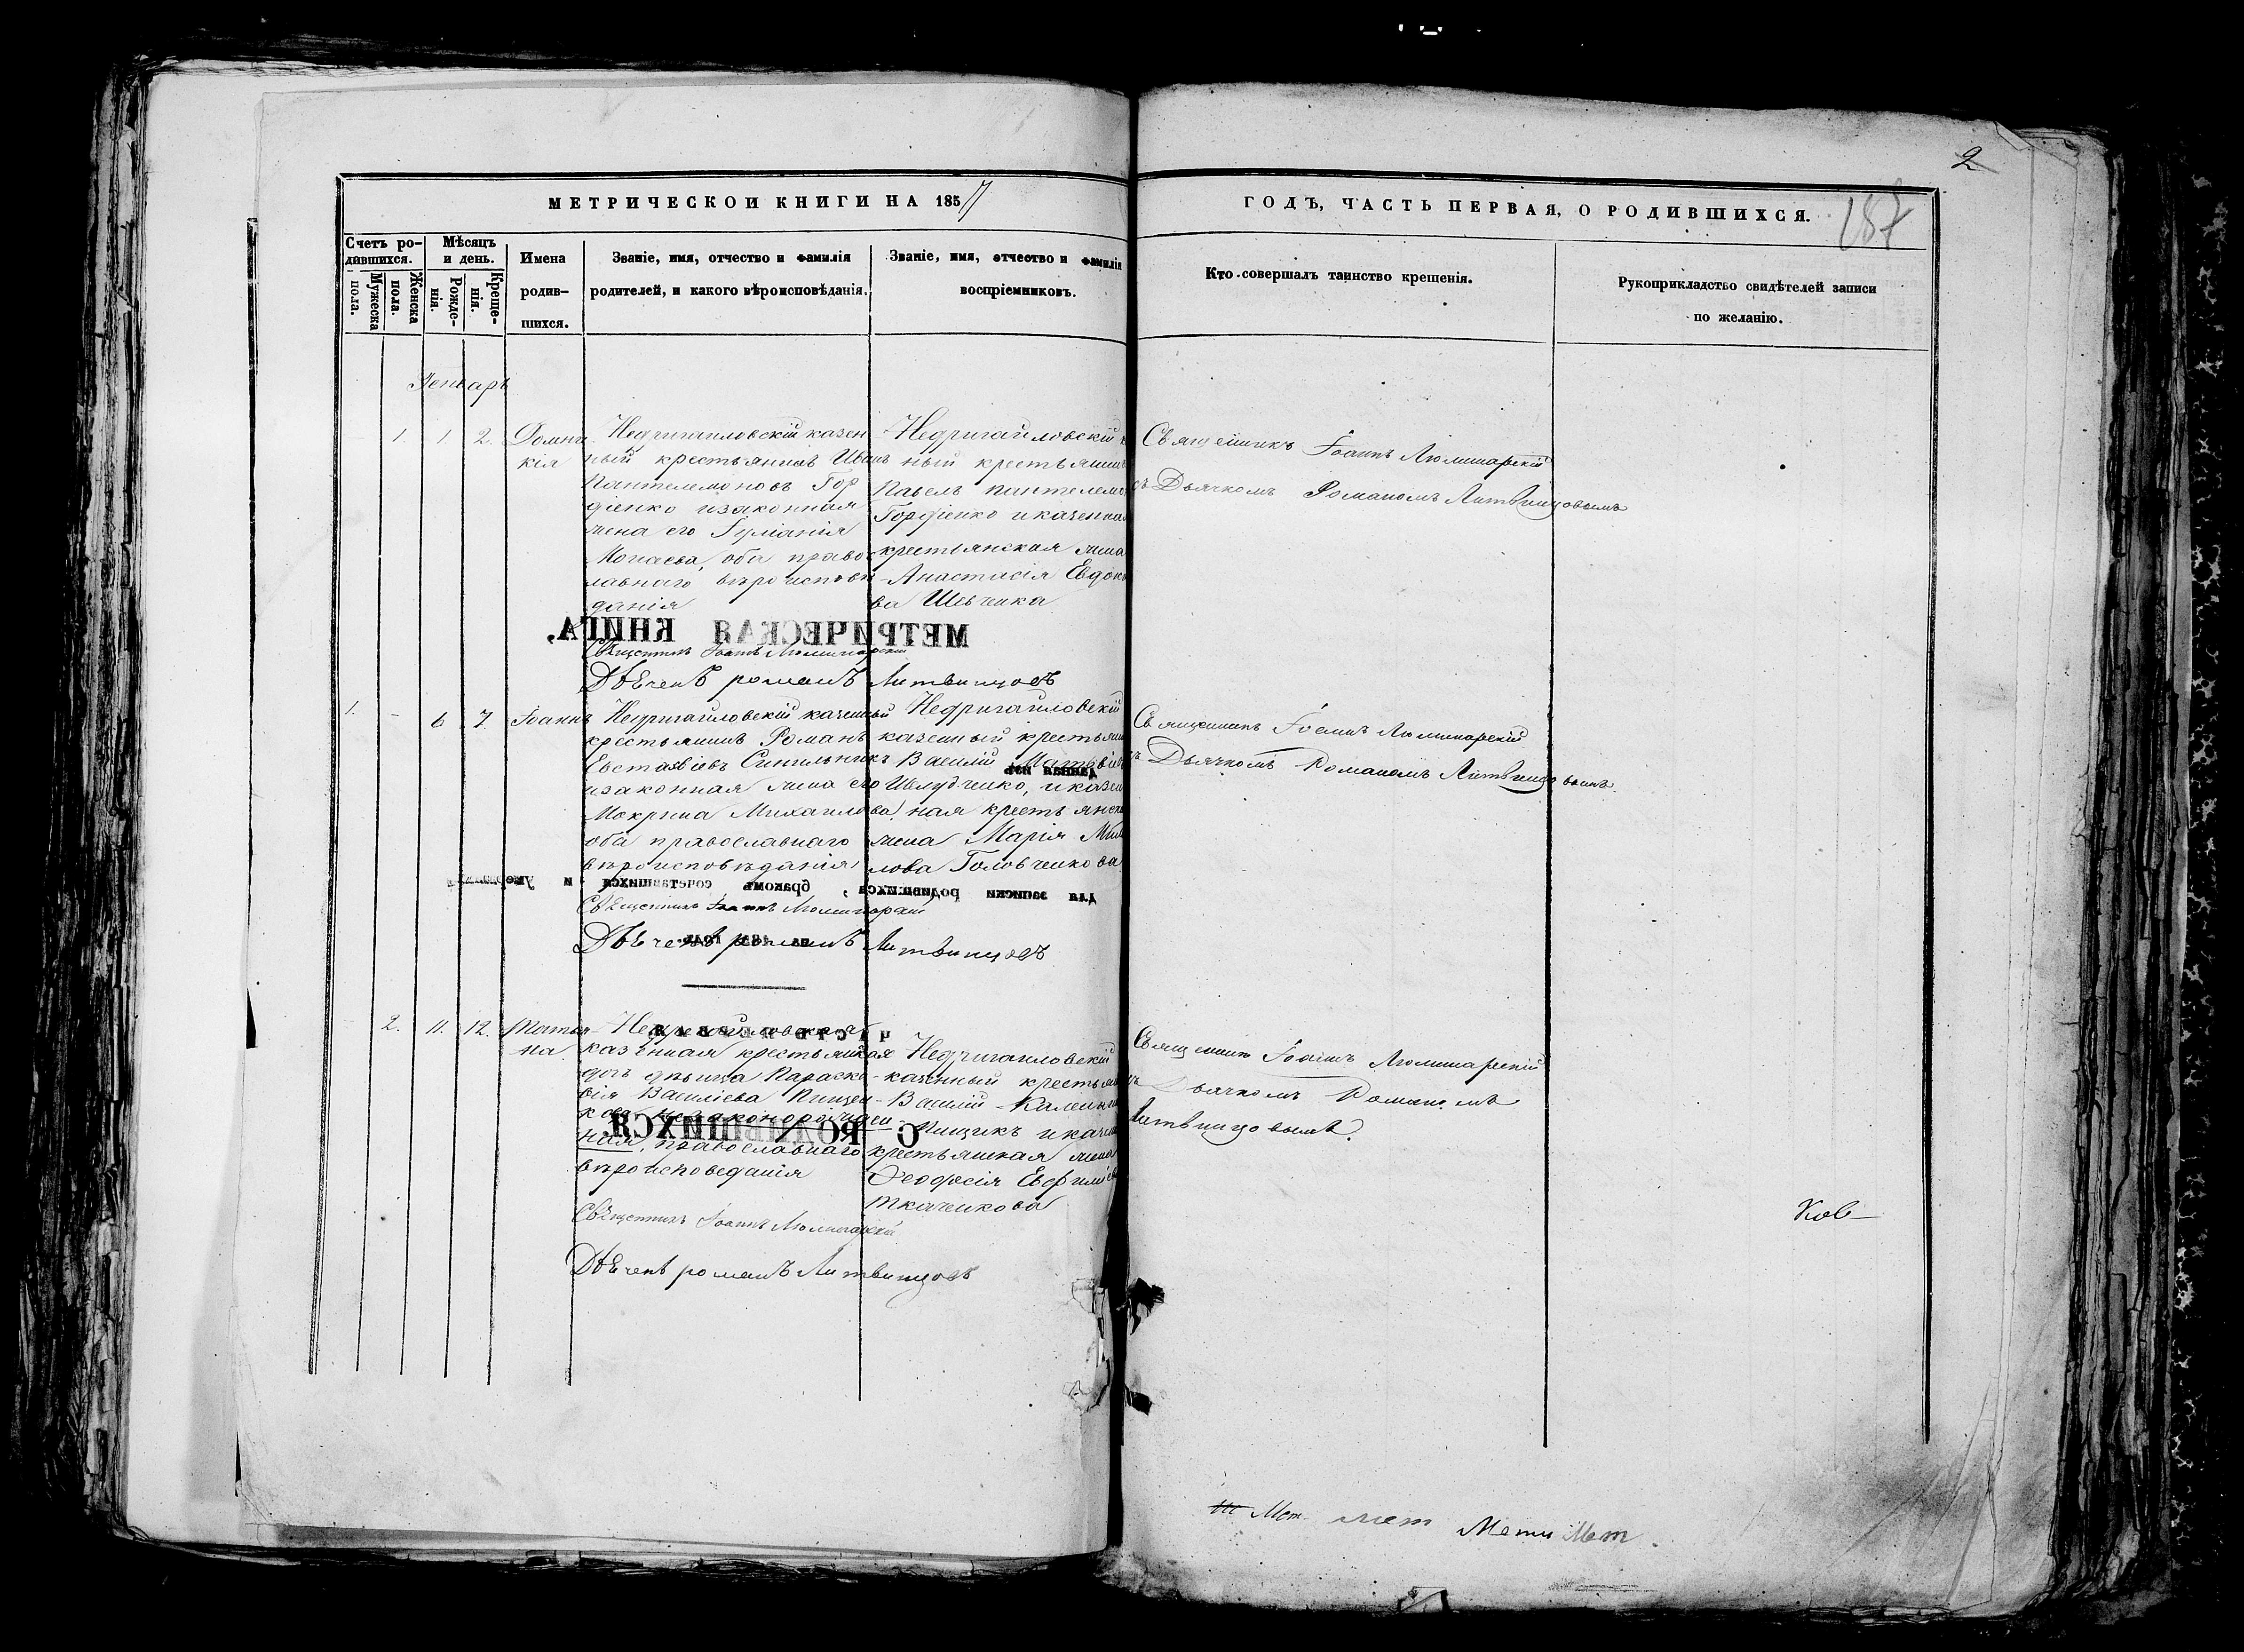 2
187
МЕТРИЧЕСКОЙ КНИГИ НА 1857
ГОДЪ, ЧАСТЬ ПЕРВАЯ, О РОДИВШИХСЯ.
Счетъ ро-
дившихся.
Мужеска
пола.
Женска
пола.
Мѣсяцъ
и день.
Рожде-
нія.
Креще-
нія.
Имена
родив-
шихся.
Званіе, имя, отчество и фамилія
родителей, и какого вѣроисповѣданія.
Званіе, имя, отчество и фамилія
воспріемниковъ.
Кто совершалъ таинство крещенія.
Рукоприкладство свидѣтелей записи
по желанію.
Генварь
1. 1. 2.
Домни
кія
Недригаиловскій казен
ный крестьянинъ Иванъ
Пантелемоновъ Гор
діенко изаконная
жена его Іуліанія
оба право
славнаго вѣроисповѣ
данія
Недригайловскій
ный крестьянинъ
Павелъ Пантелемо
Гордіенко и казенная
крестьянская жена
Анастасія Евдоки
ва Шевченка
Священникъ Іоаннъ Люминарскій
съ Дьячкомъ Романомъ Литвинцовымъ
МЕТРИЧЕСКАЯ КНИГА,
Священникъ Іоаннъ Люминарскій
Дьячекъ романъ Литвинцовъ
1. - 6 7.
Іоаннъ
Недригаиловскій казенный
крестьянинъ Романъ
Евстафіевъ Синильникъ
изаконная жена его
Мокрина Михаилова,
оба православнаго
вѣроисповѣданія
Недригаиловскій
казенный крестьян
Василій Матвѣів
Шелудченко, и казен
ная крестьянска
жена Марія Миха
лова Головченкова
Священникъ Іоаннъ Люминарскій
съ Дьячкомъ Романомъ Литвинцовымъ.
данная изъ
для записки родившихся, бракомъ сочетавшихся и умершихъ
Священникъ Іоаннъ Люминарскій
Дьячекъ романъ Литвинцовъ
2. 11. 12.
Татья-
на
Недригайловская
казенная крестьянская
дочь дѣвица Параске-
вія Василіева Пищи-
кова незаконорожден-
ная, православнаго
вѣроисповеданія
Недригаиловскій
казенный крестьян
Василій
Пищикъ и казен
крестьянская жена
Ѳеодосія Евфиміев
Ткаченкова
Священникъ Іоаннъ Люминарскій
съ Дьячкомъ Романомъ
Литвинцовымъ.
ЧАСТЬ ПЕРВАЯ
О РОДИВШИХСЯ.
Священникъ Іоаннъ Люминарскій
Дьячекъ романъ Литвинцовъ
Ков-
Мет. мет Мети Мет